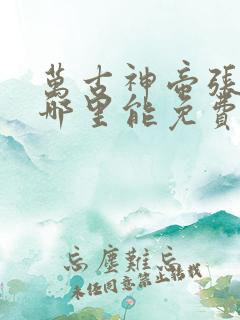 萬古神帝張
哪里能免費
忘塵難忘
未经同意禁止转载